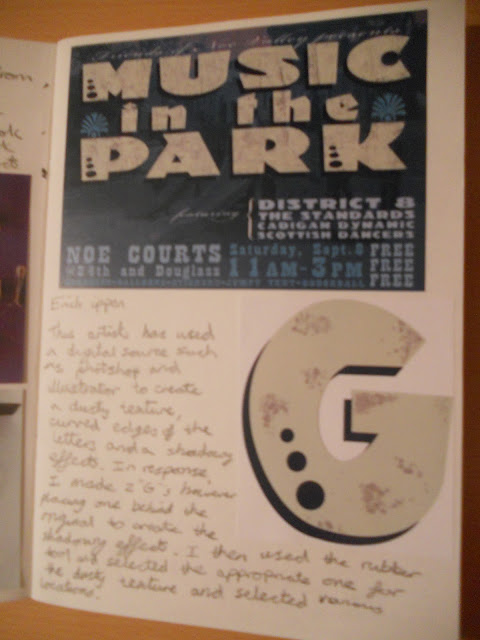 Friends of Noe Valley presents
MUSIC
in the
PARK
featuring
DISTRICT 8
THE STANDARDS
CADIGAN DYNAMIC
SCOTTISH DANCERS
NOE COURTS
@ 24th and Douglass
Saturday, Sept. 8
11AM-3PM
FREE
FREE
FREE
G
This artist has used
a digital source such
as photshop and
illustrator to create
a dusty texture,
curved edges of the
letters and a shadowy
effect. In response,
I made 2 "G"s, however
placing one behind the
original to create the
shadowy effect. I then used the rubber
tool and selected the appropriate one for
the dusty texture and selected various
locations.